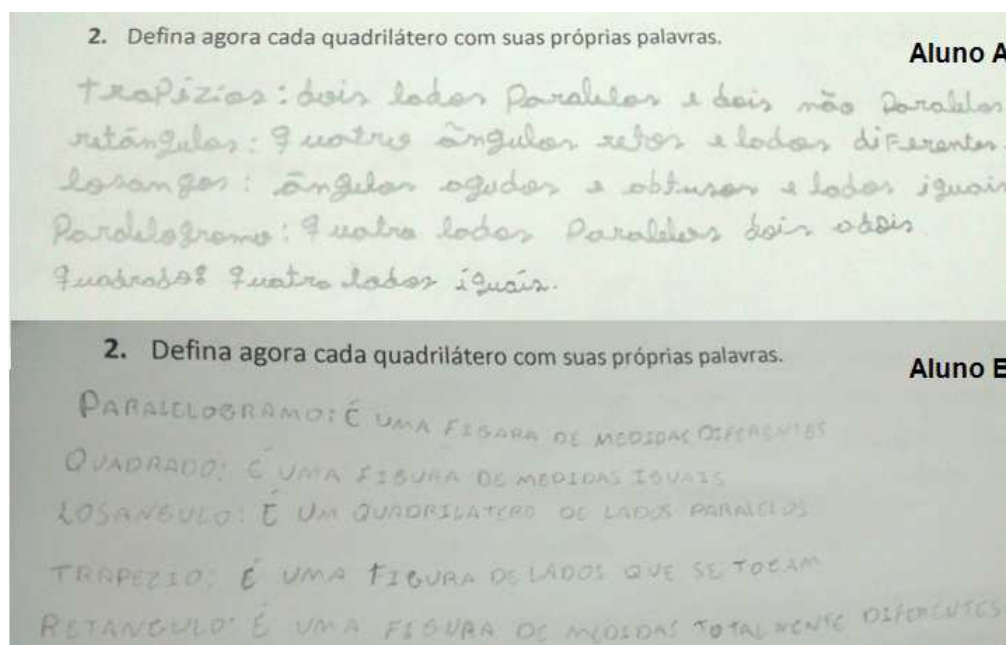 2. Defina agora cada quadrilátero com suas próprias palavras.
Aluno A
trapézios: dois lados Paralelos e dois não Paralelos
retângulos: quatro ângulos retos e lados diferentes.
losangos: ângulos agudos e obtusos e lados iguais
Paralelogramo: quatro lados Paralelos dois a dois
quadrados: quatro lados iguais.
2. Defina agora cada quadrilátero com suas próprias palavras.
Aluno E
PARALELOGRAMO: É UMA FIGARA DE MEDIDAS DIFERENTES
QUADRADO: É UMA FIGURA DE MEDIDAS IGUAIS
LOSANGULO: É UM QUADRILATERO DE LADOS PARALELOS
TRAPEZIO: É UMA FIGURA DE LADOS QUE SE TOCAM
RETANGULO: É UMA FIGURA DE MEDIDAS TOTALMENTE DIFERENTES